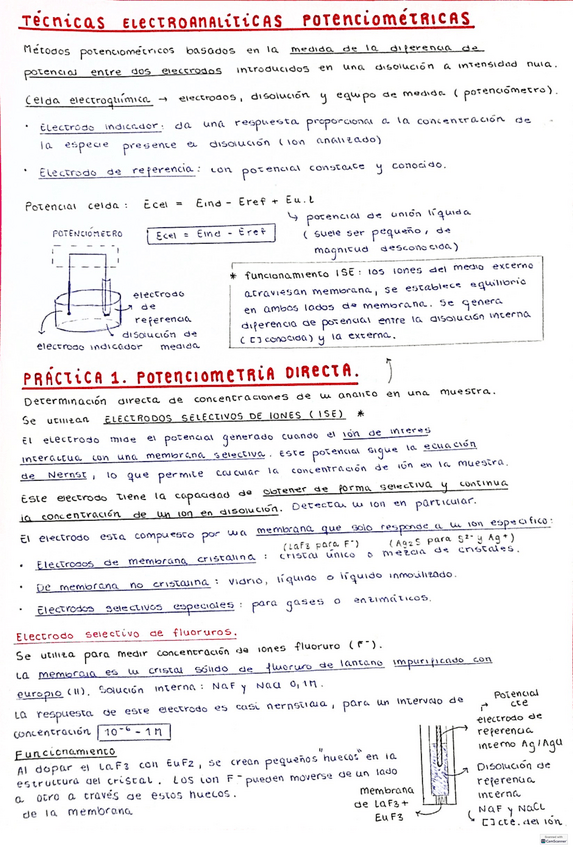 TÉCNICAS ELECTROANALÍTICAS POTENCIOMÉTRICAS
Métodos potenciométricos basados en la medida de la diferencia de
potencial entre dos electrodos introducidos en una disolución a intensidad nula.
Celda electroquímica → electrodos, disolución y equipo de medida (potenciómetro).
· Electrodo indicador: da una respuesta proporcional a la concentración de
la especie presente e disolución (ion analizado)
· Electrodo de referencia: con potencial constante y conocido.
Potencial celda: Ecel = Eind - Eref + Eu.l
↳ potencial de unión líquida
(suele ser pequeño, de
magnitud desconocida)
Ecel = Eind - Eref
POTENCIÓMETRO
electrodo
de
referencia
disolución de
medida
electrodo indicador
* Funcionamiento ISE: los iones del medio externo
atraviesan membrana, se establece equilibrio
en ambos lados de membrana. Se genera
diferencia de potencial entre la disolución interna
([] conocida) y la externa.
PRÁCTICA 1. POTENCIOMETRÍA DIRECTA.
Determinación directa de concentraciones de un analito en una muestra.
Se utilizan ELECTRODOS SELECTIVOS DE IONES (ISE) *
El electrodo mide el potencial generado cuando el ion de interés
interactúa con una membrana selectiva. Este potencial sigue la ecuación
de Nernst, lo que permite calcular la concentración de ion en la muestra.
Este electrodo tiene la capacidad de obtener de forma selectiva y continua
la concentración de un ion en disolución. Detectan un ion en particular.
El electrodo esta compuesto por una membrana que solo responde a un ion específico:
(LaF3 para F⁻) (Ag2S para S²⁻ y Ag⁺)
· Electrodos de membrana cristalina: cristal único o mezcla de cristales.
· De membrana no cristalina: vidrio, líquido o líquido inmovilizado.
· Electrodos selectivos especiales: para gases o enzimáticos.
Electrodo selectivo de fluoruros.
Se utiliza para medir concentración de iones fluoruro (F⁻).
La membrana es un cristal sólido de fluoruro de lantano impurificado con
europio (II). Solución interna: NaF y NaCl 0,1M.
La respuesta de este electrodo es casi nernstiana, para un intervalo de
concentración 10⁻⁶ - 1M
Funcionamiento
Al dopar el LaF3 con EuF2, se crean pequeños "huecos" en la
estructura del cristal. Los ion F⁻ pueden moverse de un lado
a otro a través de estos huecos.
de la membrana
Potencial
cte
electrodo de
referencia
interno Ag/AgCl
Disolución de
referencia
interna
NaF y NaCl
↳ [] cte. del ión
Membrana
de LaF3 +
EuF3